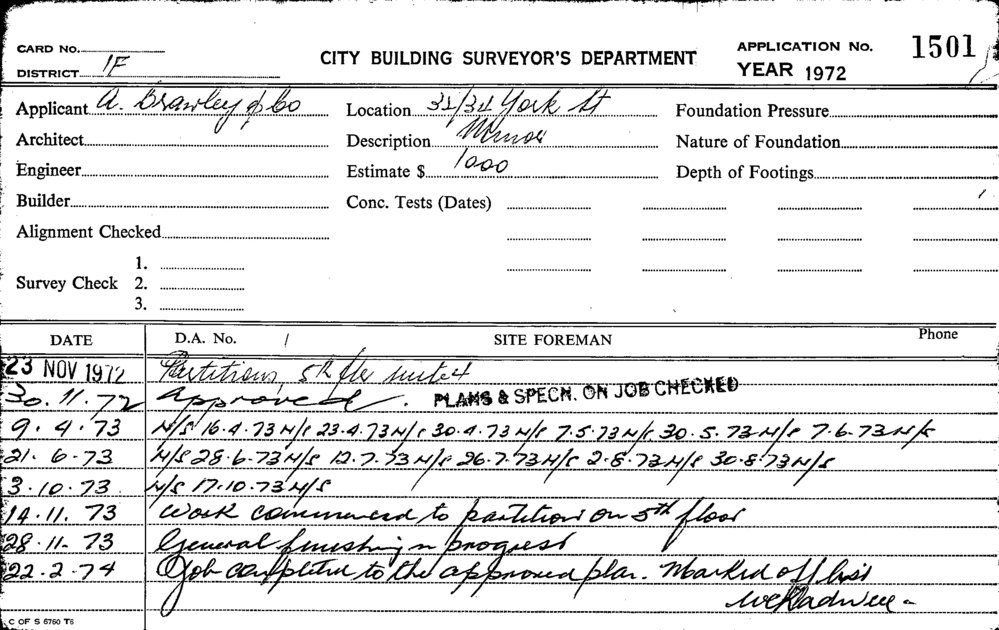 CARD No.
DISTRICT 1F
CITY BUILDING SURVEYOR'S DEPARTMENT
APPLICATION No. 1501
YEAR 1972
Applicant A. Brawley & Co
Location 32/34 York St
Foundation Pressure
Architect
Description Minor
Nature of Foundation
Engineer
Estimate $ 1000
Depth of Footings
Builder
Conc. Tests (Dates)
Alignment Checked
Survey Check 1.
2.
3.
DATE D.A. No. / SITE FOREMAN Phone
23 NOV 1972 Partitions, 5th flr suite 4
30.11.72 Approved. PLANS & SPECN. ON JOB CHECKED
9.4.73 N/S 16.4.73 N/S 23.4.73 N/S 30.4.73 N/S 7.5.73 N/S 30.5.73 N/S 7.6.73 N/S
21.6.73 N/S 28.6.73 N/S 12.7.73 N/S 26.7.73 N/S 2.8.73 N/S 30.8.73 N/S
3.10.73 N/S 17.10.73 N/S
14.11.73 Work commenced to partition on 5th floor
28.11.73 General finishing in progress
22.2.74 Job completed to the approved plan. Marked off list
C OF S 6760 T6